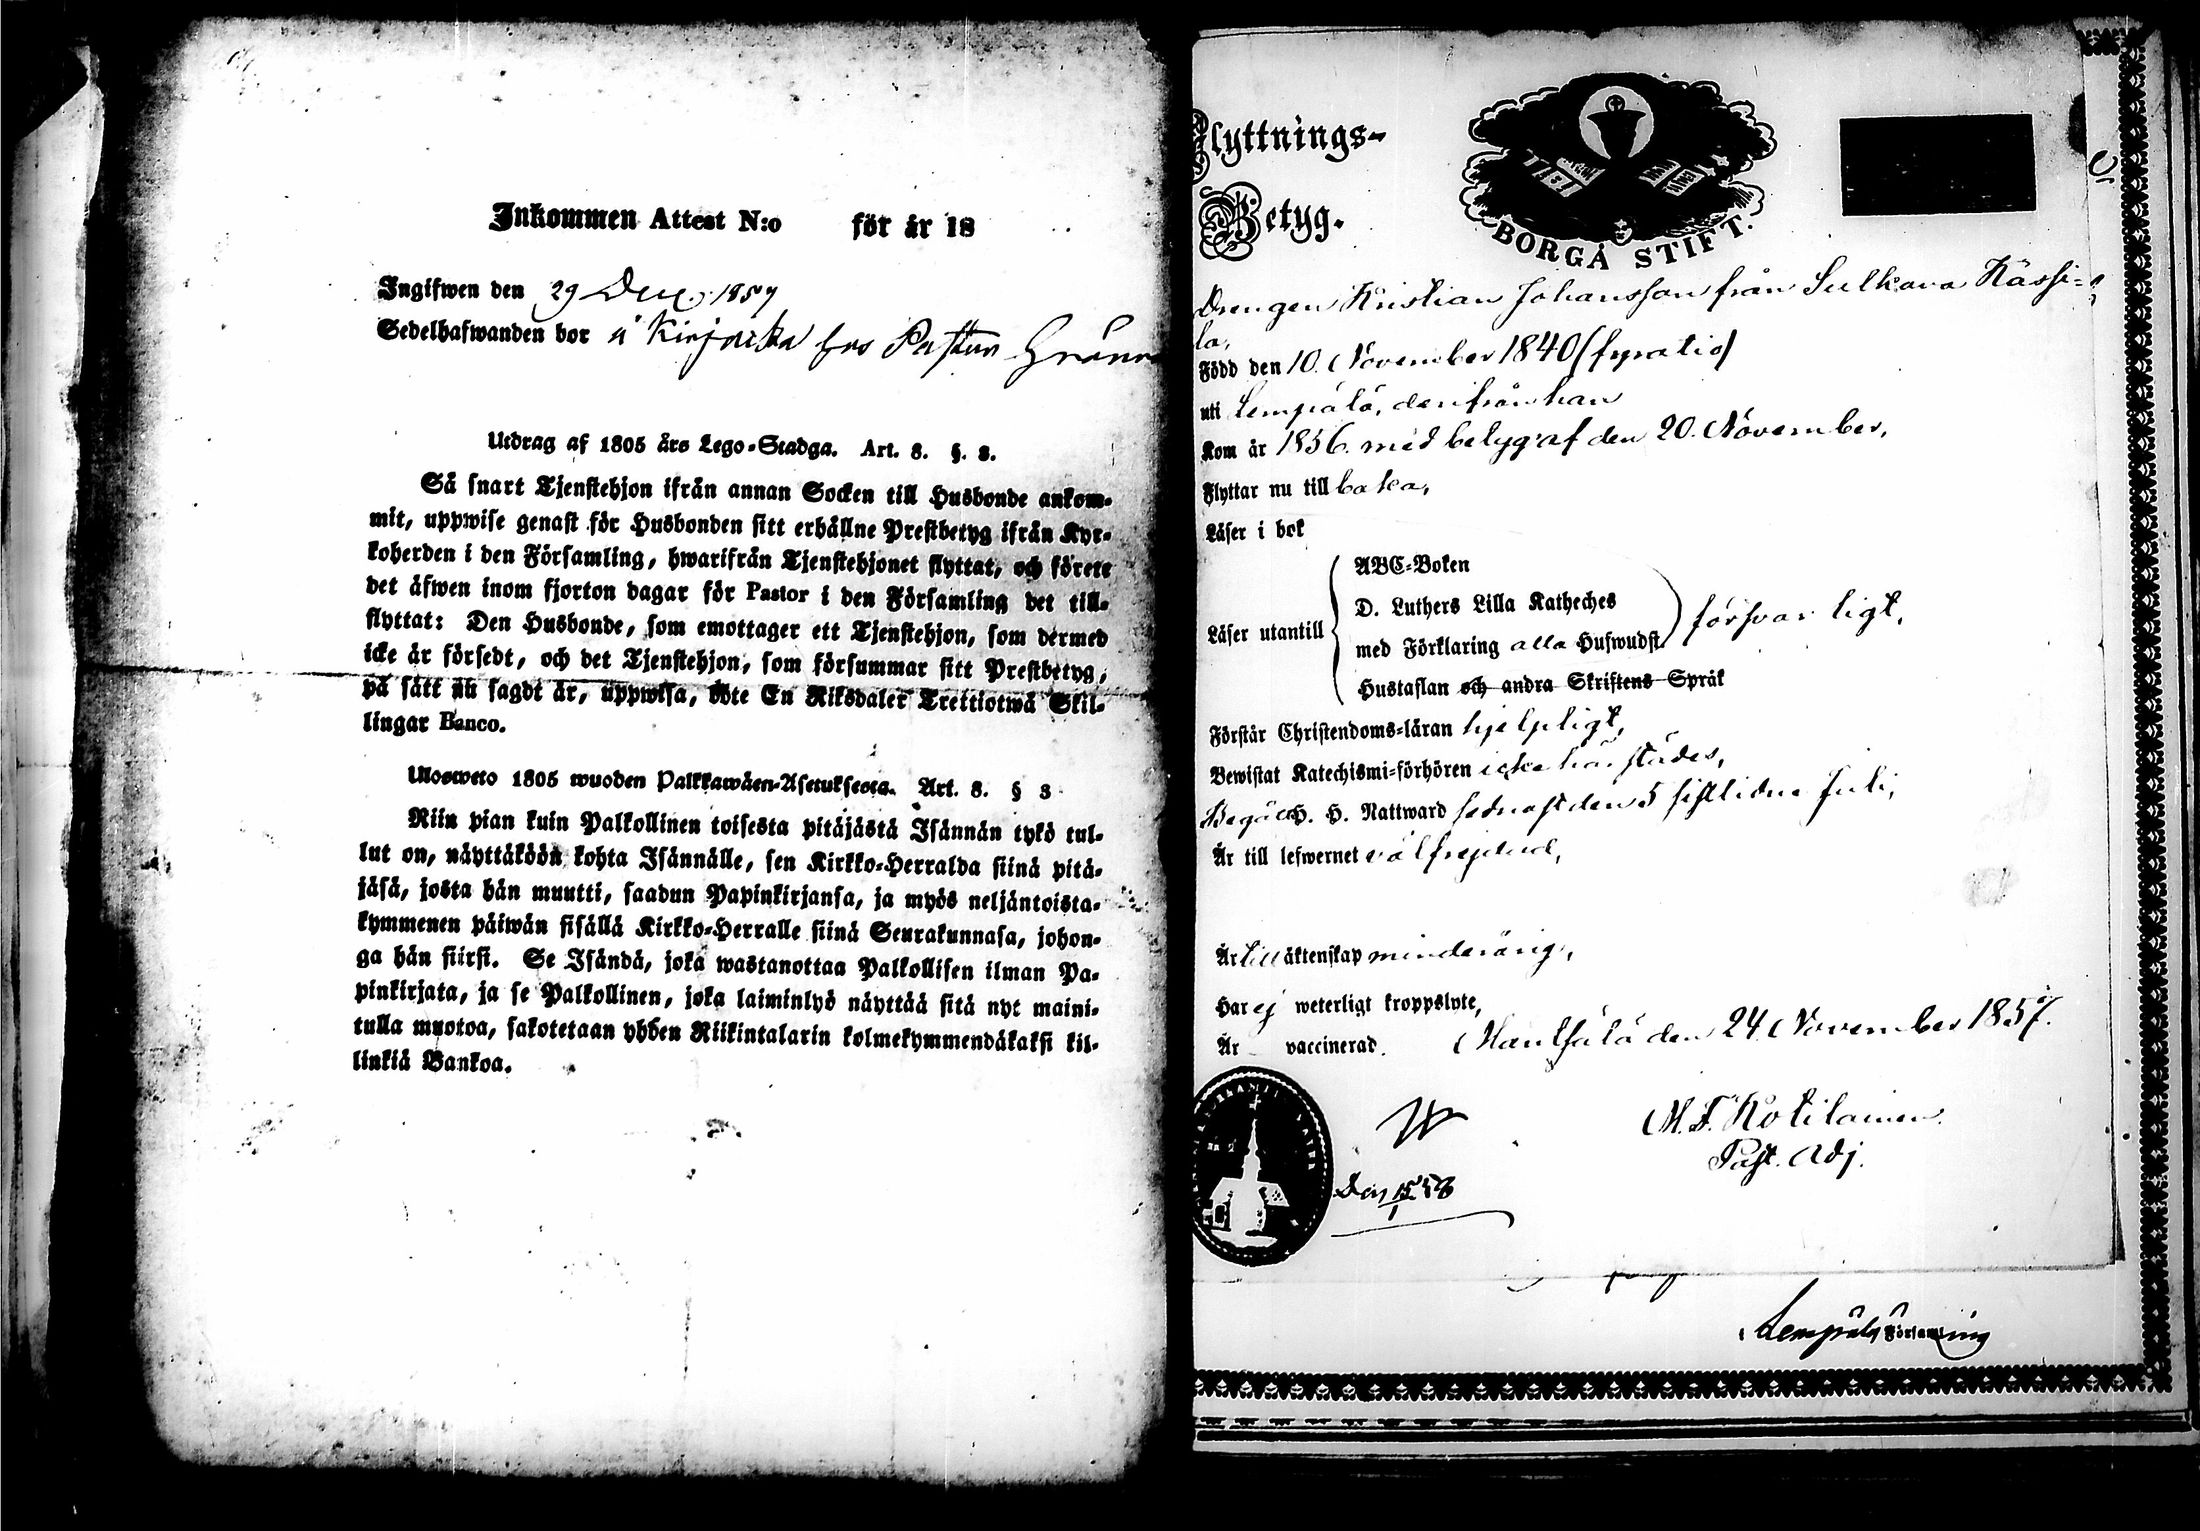 Inkommen Attest N:o för år 18
Ingifwen den 29 Dec. 1857
Sedelhafwanden bor å Kirjaska hos Pastorn
Utdrag af 1805 års Lego-Stadga. Art. 8. §. 3.
Så snart Tjenstehjon ifrån annan Socken till Husbonde ankom-
mit, uppwise genast för Husbonden sitt erhållne Prestbetyg ifrån Kyr-
koherden i den Församling, hwarifrån Tjenstehjonet flyttat, och förete
det äfwen inom fjorton dagar för Pastor i den Församling det till-
flyttat: Den Husbonde, som emottager ett Tjenstehjon, som dermed
icke är försedt, och det Tjenstehjon, som försummar sitt Prestbetyg,
på sätt nu sagdt är, uppwisa, böte En Riksdaler Trettiotwå Skil-
lingar Banco.
Ulosweto 1805 wuoden Palkkawäen-Asetuksesta. Art. 8. § 3
Niin pian kuin Palkollinen toisesta pitäjästä Isännän tykö tul-
lut on, näyttäköön kohta Isännälle, sen Kirkko-Herralda siinä pitä-
jäsä, josta hän muutti, saadun Papinkirjansa, ja myös neljäntoista-
kymmenen päiwän sisällä Kirkko-Herralle siinä Seurakunnasa, johon-
ga hän siirsi. Se Isändä, joka wastanottaa Palkollisen ilman Pa-
pinkirjata, ja se Palkollinen, joka laiminlyö näyttää sitä nyt maini-
tulla muotoa, sakotetaan yhden Riikintalarin kolmekymmendäkaksi kil-
linkiä Bankoa.
Flyttnings-
Betyg.
BORGÅ STIFT.
Drengen Kristian Johansson från Sulkava Kässi-
la,
Född den 10. November 1840 (fyratio)
uti Lempälä, derifrån han
Kom år 1856 med betyg af den 20. November,
Flyttar nu till baka,
Läser i bok
Läser utantill
ABC-Boken
D. Luthers Lilla Katheches
med Förklaring alla Hufwudst.
Hustaflan och andra Skriftens Språk
försvarligt,
Förstår Christendoms-läran hjelpligt,
Bewistat Katechismi-förhören icke härstädes,
Begått H. H. Nattward sednast den 5 sistlidne Juli,
Är till lefwernet välfrejdad,
Är till äktenskap minderårig,
Har ej weterligt kroppslyte,
Är vaccinerad.
Mantsälä den 24 November 1857.
M. F. Kotilainen.
Past. Adj.
Den 15/1 58
Lempälä Församling